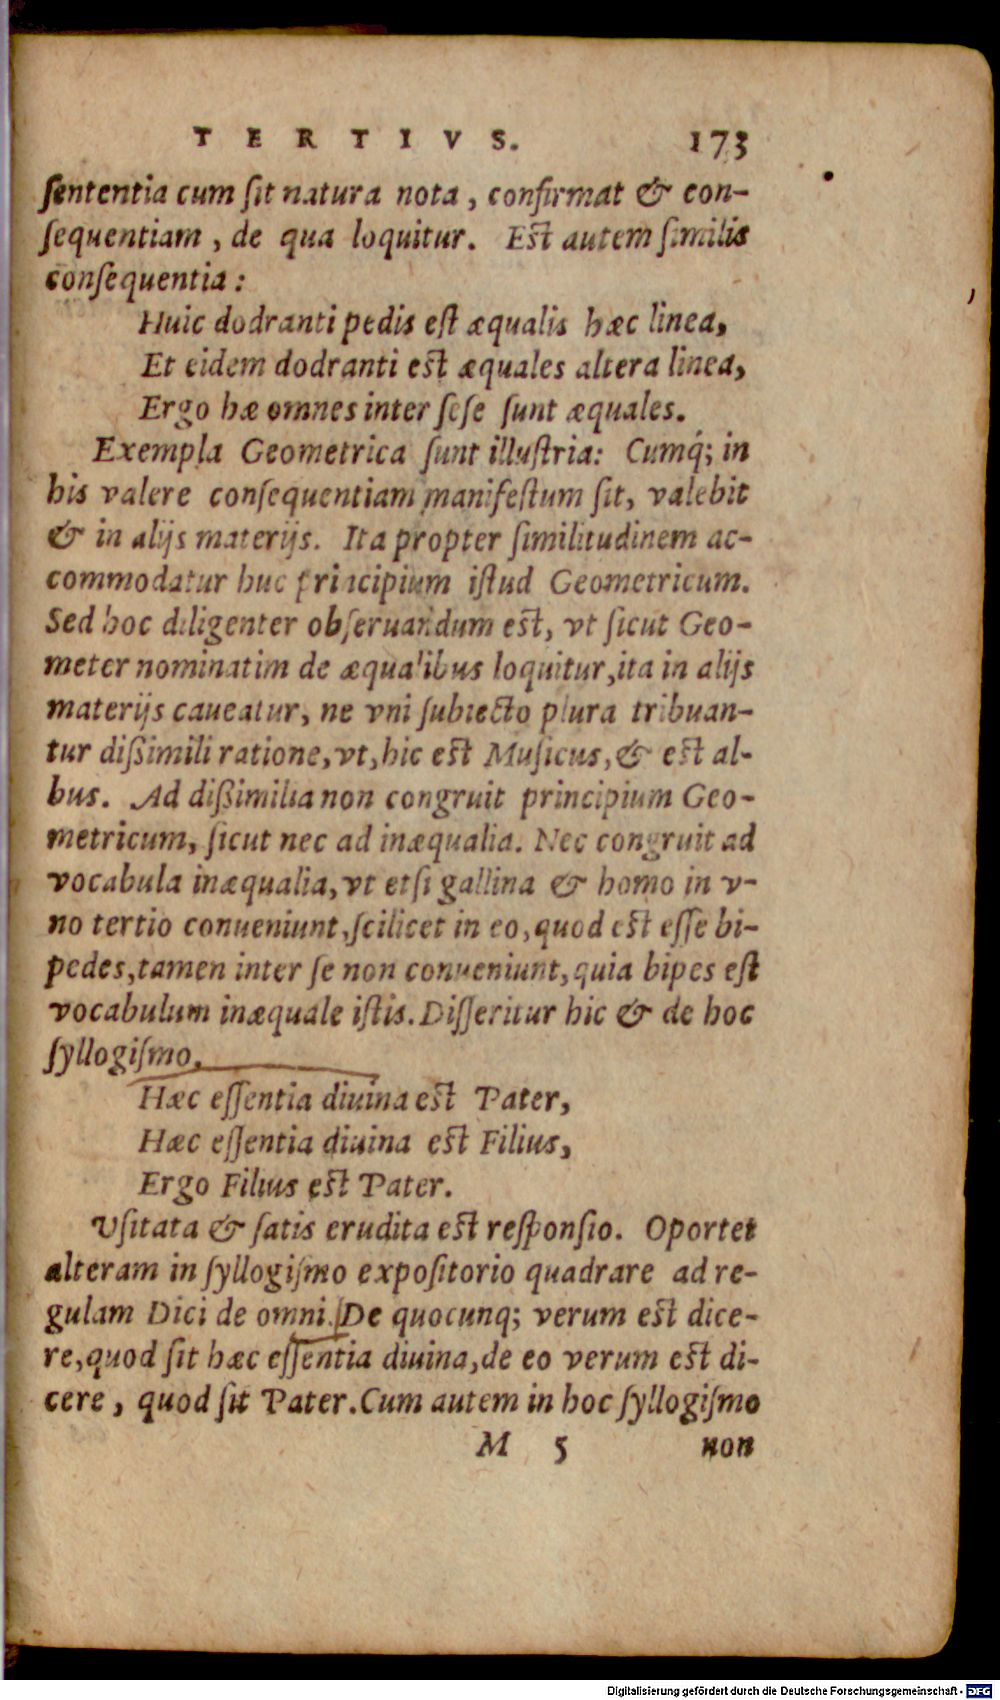 TERTIVS. 173
ſententia cum ſit natura nota, confirmat & con-
ſequentiam, de qua loquitur. Eſt autem ſimilis
conſequentia:
Huic dodranti pedis eſt æqualis hæc linea,
Et eidem dodranti eſt æquales altera linea,
Ergo hæ omnes inter ſeſe ſunt æquales.
Exempla Geometrica ſunt illuſtria: Cumq́; in
his valere conſequentiam manifeſtum ſit, valebit
& in alijs materijs. Ita propter ſimilitudinem ac-
commodatur huc principium iſtud Geometricum.
Sed hoc diligenter obſeruandum eſt, vt ſicut Geo-
meter nominatim de æqualibus loquitur, ita in alijs
materijs caueatur, ne vni ſubiecto plura tribuan-
tur dißimili ratione, vt, hic eſt Muſicus, & eſt al-
bus. Ad dißimilia non congruit principium Geo-
metricum, ſicut nec ad inæqualia. Nec congruit ad
vocabula inæqualia, vt etſi gallina & homo in v-
no tertio conueniunt, ſcilicet in eo, quod eſt eſſe bi-
pedes, tamen inter ſe non conueniunt, quia bipes eſt
vocabulum inæquale iſtis. Diſſeritur hic & de hoc
ſyllogiſmo.
Hæc eſſentia diuina eſt Pater,
Hæc eſſentia diuina eſt Filius,
Ergo Filius eſt Pater.
Vſitata & ſatis erudita eſt reſponſio. Oportet
alteram in ſyllogiſmo expoſitorio quadrare ad re-
gulam Dici de omni. De quocunq; verum eſt dice-
re, quod ſit hæc eſſentia diuina, de eo verum eſt di-
cere, quod ſit Pater. Cum autem in hoc ſyllogiſmo
M 5 non
Digitalisierung gefördert durch die Deutsche Forschungsgemeinschaft - DFG